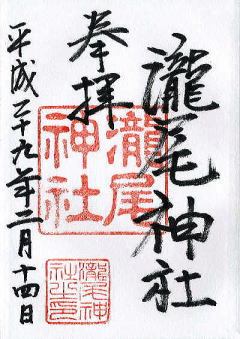 奉拝
瀧尾神社
平成二十九年二月十四日
瀧尾神社
瀧尾神社之印